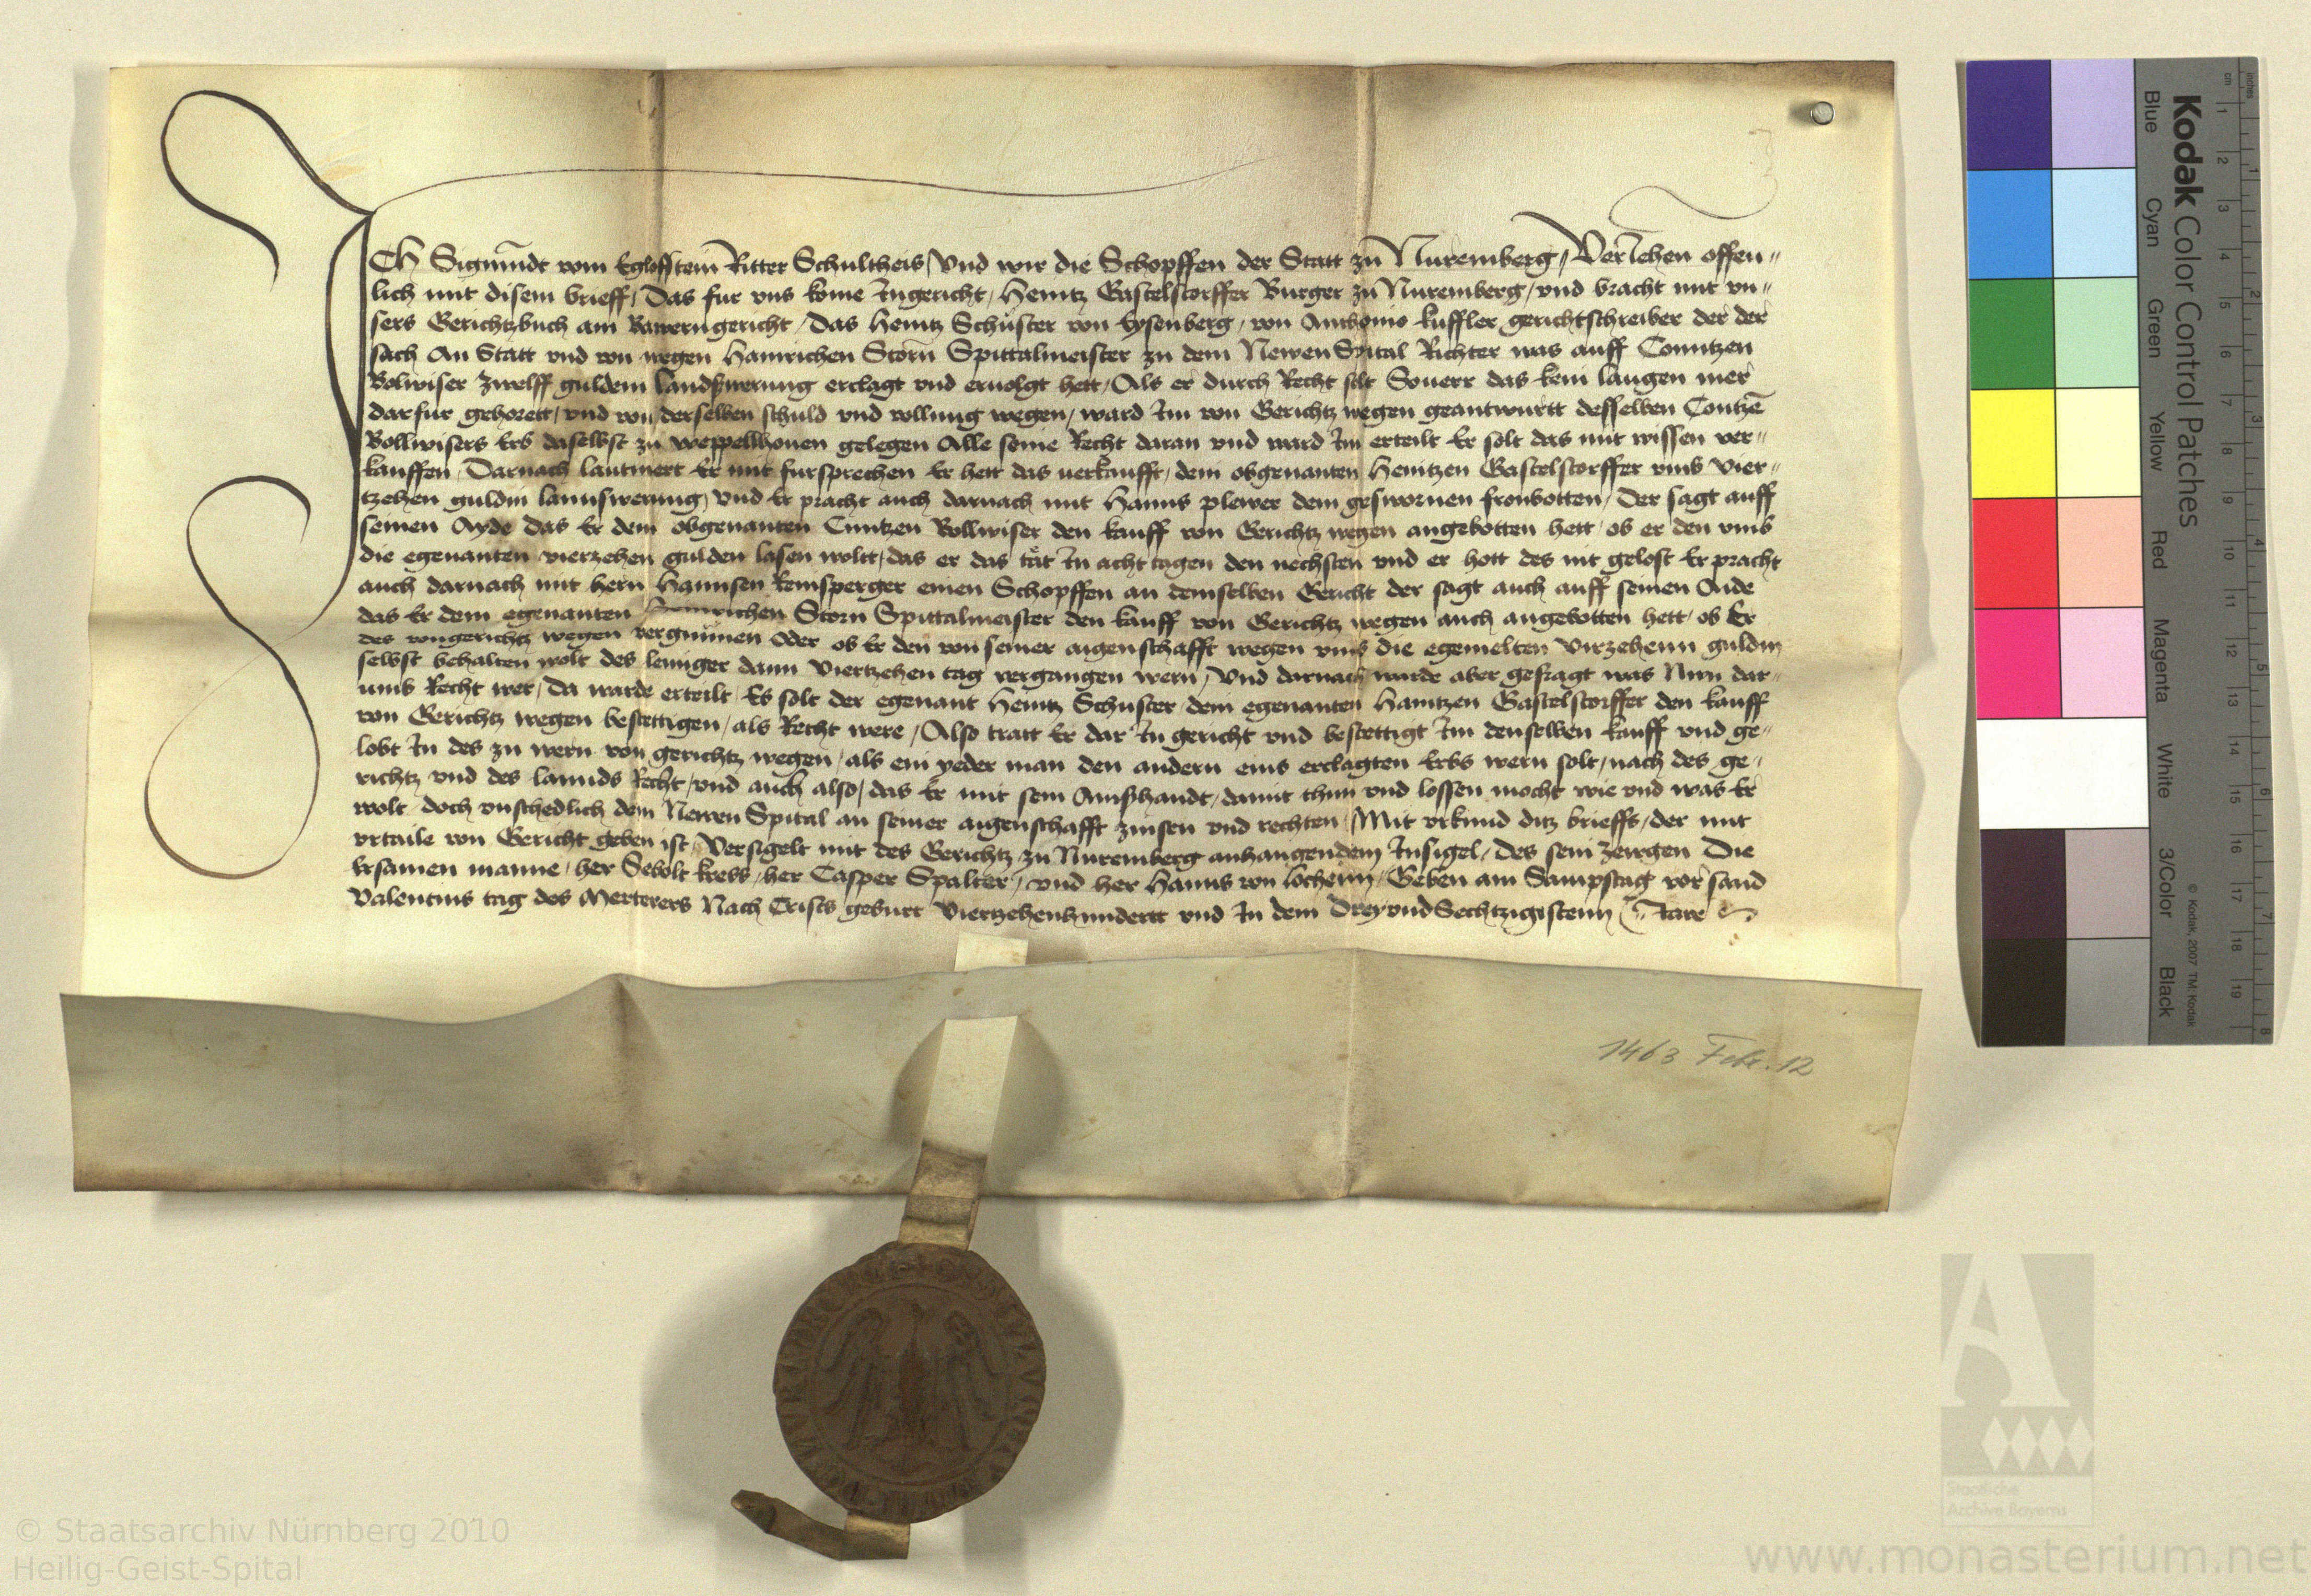 ICh Sigmūndt vom Egloffstein Ritter Schultheis/ Vnd wir die Schopffen der Statt zu Nuremberg/ Veriehen offen„
lich mit disem brieff/ Das fur vns kome Ingericht/ Heintz Gastelstorffer Burger zu Nuremberg/ vnd bracht mit vn„
sers Gerichtzbuch am Bawerngericht/ Das Heintz Schuster von Eysenberg/ von Anthonio kuffler gerichtschreiber der der
sach An Statt vnd von wegen Hainrichen Storn Spittalmeister zu dem Newen Spital Richter was auff Conntzen
Bolwiser zwelff guldein landswerung erclagt vnd ervolgt hett/ Als er durch Recht solt Souerr das kein laugen mer
darfur gehorett/ vnd von derselben schuld vnd vollung wegen/ ward Im von Gerichtz wegen geantwurtt desselben Contzē
Bollwisers Erb daselbst zu weppellhouen gelegen Alle seine Recht daran vnd ward Im erteilt Er solt das mit wissen ver„
kauffen/ Darnach lautmert Er mit fursprechen Er hett das uerkaufft/ dem obgenanten Heintzen Gastelstorffer vmb vier„
tzehen guldin lannswerung/ vnd Er pracht auch darnach mit Hanns plewer dem geswornen fronbotten/ Der sagt auff
seinen Ayde das Er dem obgenanten Cuntzen Bollwiser den kauff von Gerichtz wegen angebotten hett/ ob er den vmb
die egenanten vierzehen gulden losen woltt/ das er das tät In acht tagen den nechsten vnd er hott des nit gelost Er pracht
auch darnach mit hern Hannsen Remsperger einen Schopffen an demselben Gericht der sagt auch auff seinen Aide
das Er dem egenanten Hainrichen Storn Spittalmeister den kauff von Gerichtz wegen auch angebotten hett/ ob Er
des vongerichtz wegen vergunnen Oder ob Er den von seiner aigenschafft wegen vmb die egemelten virzehenn guldin
selbst behalten wolt des lenger dann viertzehen tag vergangen wern/ Vnd darnach wurde aber gefragt was Nun dar„
umb Recht wer/ Da warde erteilt/ Es solt der egenant Heintz Schuster dem egenanten Haintzen Gastelstorffer den kauff
von Gerichtz wegen bestettigen/ als Recht were/ Also tratt Er dar In gericht vnd bestettigt Im denselben kauff vnd ge„
lobt In des zu wern von gerichtz wegen/ als ein yeder man den andern eins erclagten Erbs wern solt/ nach des ge„
richtz vnd des lannds Recht/ vnd auch also/ das Er mit sein damit thun vnd lossen mocht wie vnd was Er
wolt doch vnschedlich dem Newen Spital an seiner aigenschafft zinsen vnd rechten/ Mit vrkund ditz brieffs/ der mit
vrtaile von Gericht geben ist/ Versigelt mit des Gerichtz zu Nuremberg anhangendem Insigel/ des sein zewgen Die
Ersamen manne/ her Sebolt kress/ her Casper Spalter/ vnd her Hanns von locheim/ Geben am Sampstag vor sand
Valentins tag des Merterers Nach Crists geburt Viertzehenhundertt vnd In dem Drey vnd Sechtzigistenn Iare
1463 Febr. 12
Kodak Color Control Patches
Blue Cyan Green Yellow Red Magenta White 3/Color Black
© Kodak, 2007 TM: Kodak
inches 1 2 3 4 5 6 7 8
cm 1 2 3 4 5 6 7 8 9 10 11 12 13 14 15 16 17 18 19
Staatliche
Archive Bayerns
© Staatsarchiv Nürnberg 2010
Heilig-Geist-Spital
www.monasterium.net